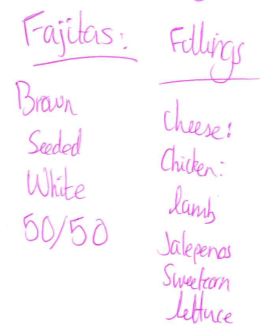 Fajitas:
Brown
Seeded
White
50/50
Fillings
Cheese:
Chicken:
lamb
Jalepenos
Sweetcorn
lettuce